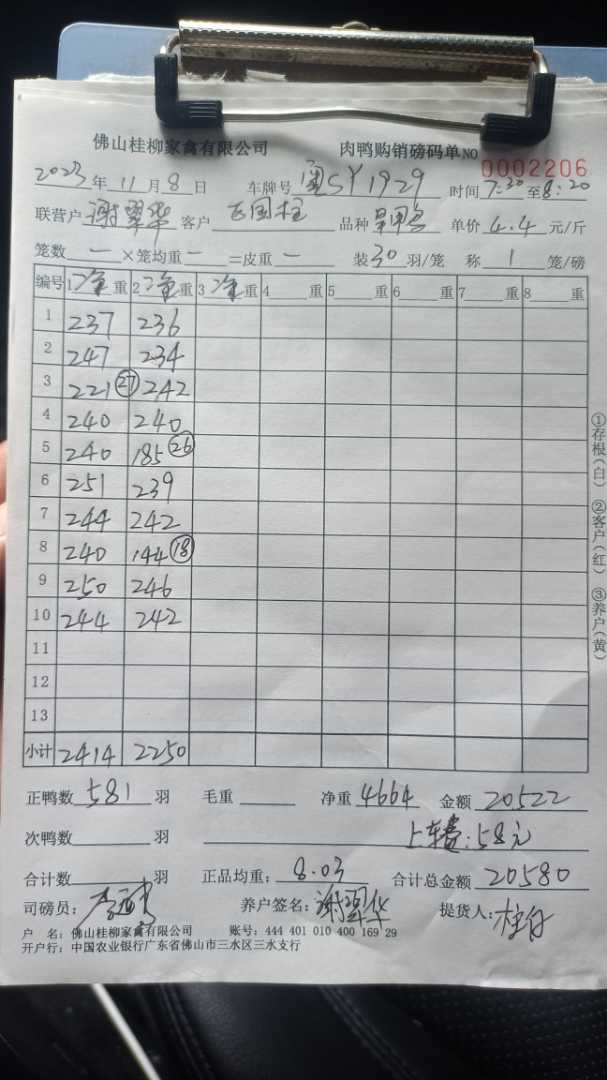 佛山桂柳家禽有限公司 肉鸭购销磅码单 NO 0002206
2023年11月8日 车牌号 SY1929 时间 7:30 至 8:20
联营户 谢翠华 客户 国柱 品种 单价 4.4 元/斤
笼数 一 ×笼均重 一 =皮重 一 装 30 羽/笼 称 1 笼/磅
编号 1 净重 2 净重 3 净重 4 重 5 重 6 重 7 重 8 重
1 237 236
2 247 234
3 221 ㉗ 242
4 240 240
5 240 185 ㉖
6 251 239
7 244 242
8 240 144 ⑱
9 250 246
10 244 242
11
12
13
小计 2414 2250
正鸭数 581 羽 毛重 净重 4664 金额 20522
次鸭数 羽 上车费:58元
合计数 羽 正品均重: 8.03 合计总金额 20580
司磅员: 养户签名: 谢翠华 提货人:
户 名: 佛山桂柳家禽有限公司 账号: 444 401 010 400 169 29
开户行: 中国农业银行广东省佛山市三水区三水支行
①存根(白) ②客户(红) ③养户(黄)